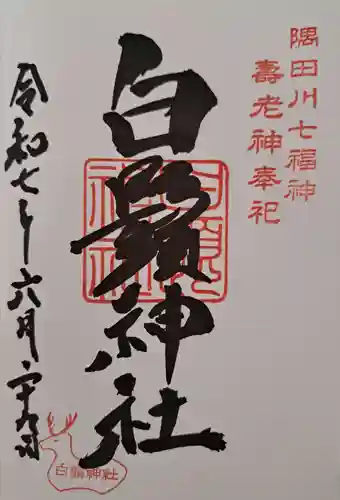 隅田川七福神
壽老神奉祀
白鬚神社
令和七年六月二十九日
白鬚神社